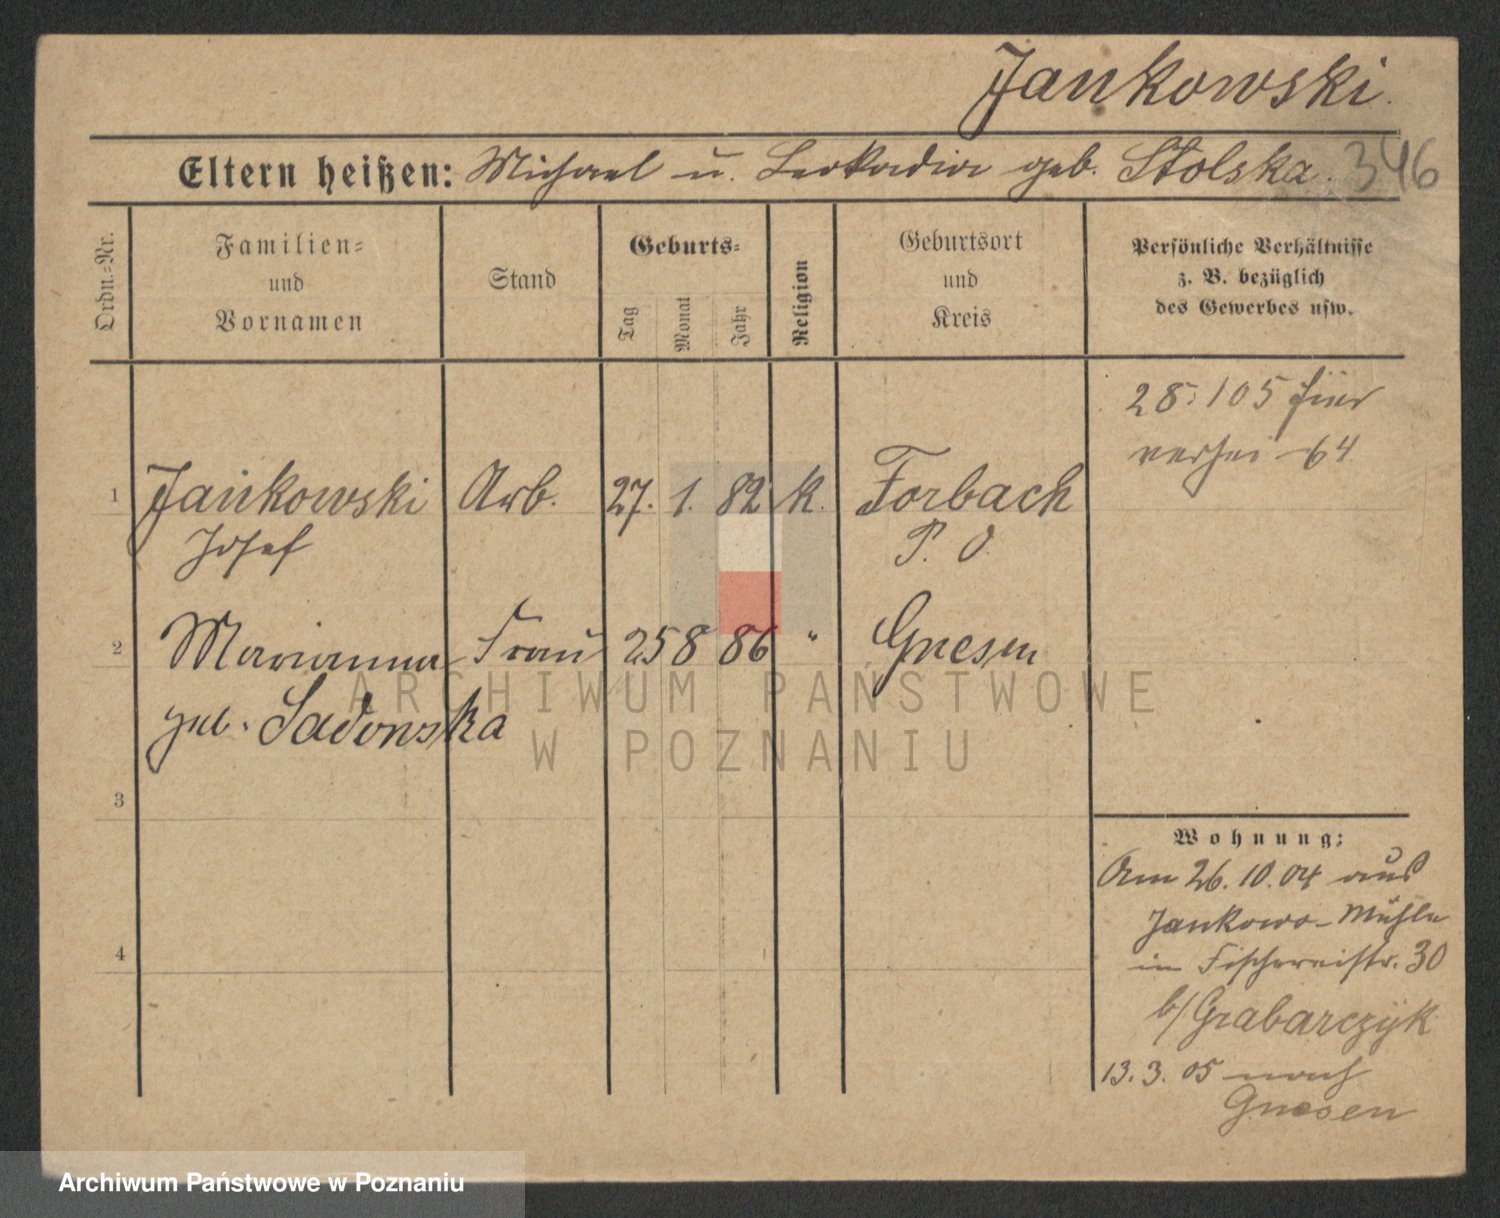 Jankowski.
Eltern heißen: Michael u. Leokadia geb. Stolska. 346
Ordn.=Nr.
Familien=
und
Vornamen
Stand
Geburts=
Tag
Monat
Jahr
Religion
Geburtsort
und
Kreis
Persönliche Verhältnisse
z. B. bezüglich
des Gewerbes usw.
28: 105 hier
verhei 64
1 Jankowski Arb. 27. 1. 82 K. Forbach
Josef P. O.
2 Marianna Frau 25 8 86 " Gnesen
geb. Sadowska
ARCHIWUM PAŃSTWOWE
W POZNANIU
3
4
Wohnung:
Am 26.10.04 aus
Jankowo-Mühle
in Fischereistr. 30
b/Grabarczyk
13.3.05 nach
Gnesen
Archiwum Państwowe w Poznaniu